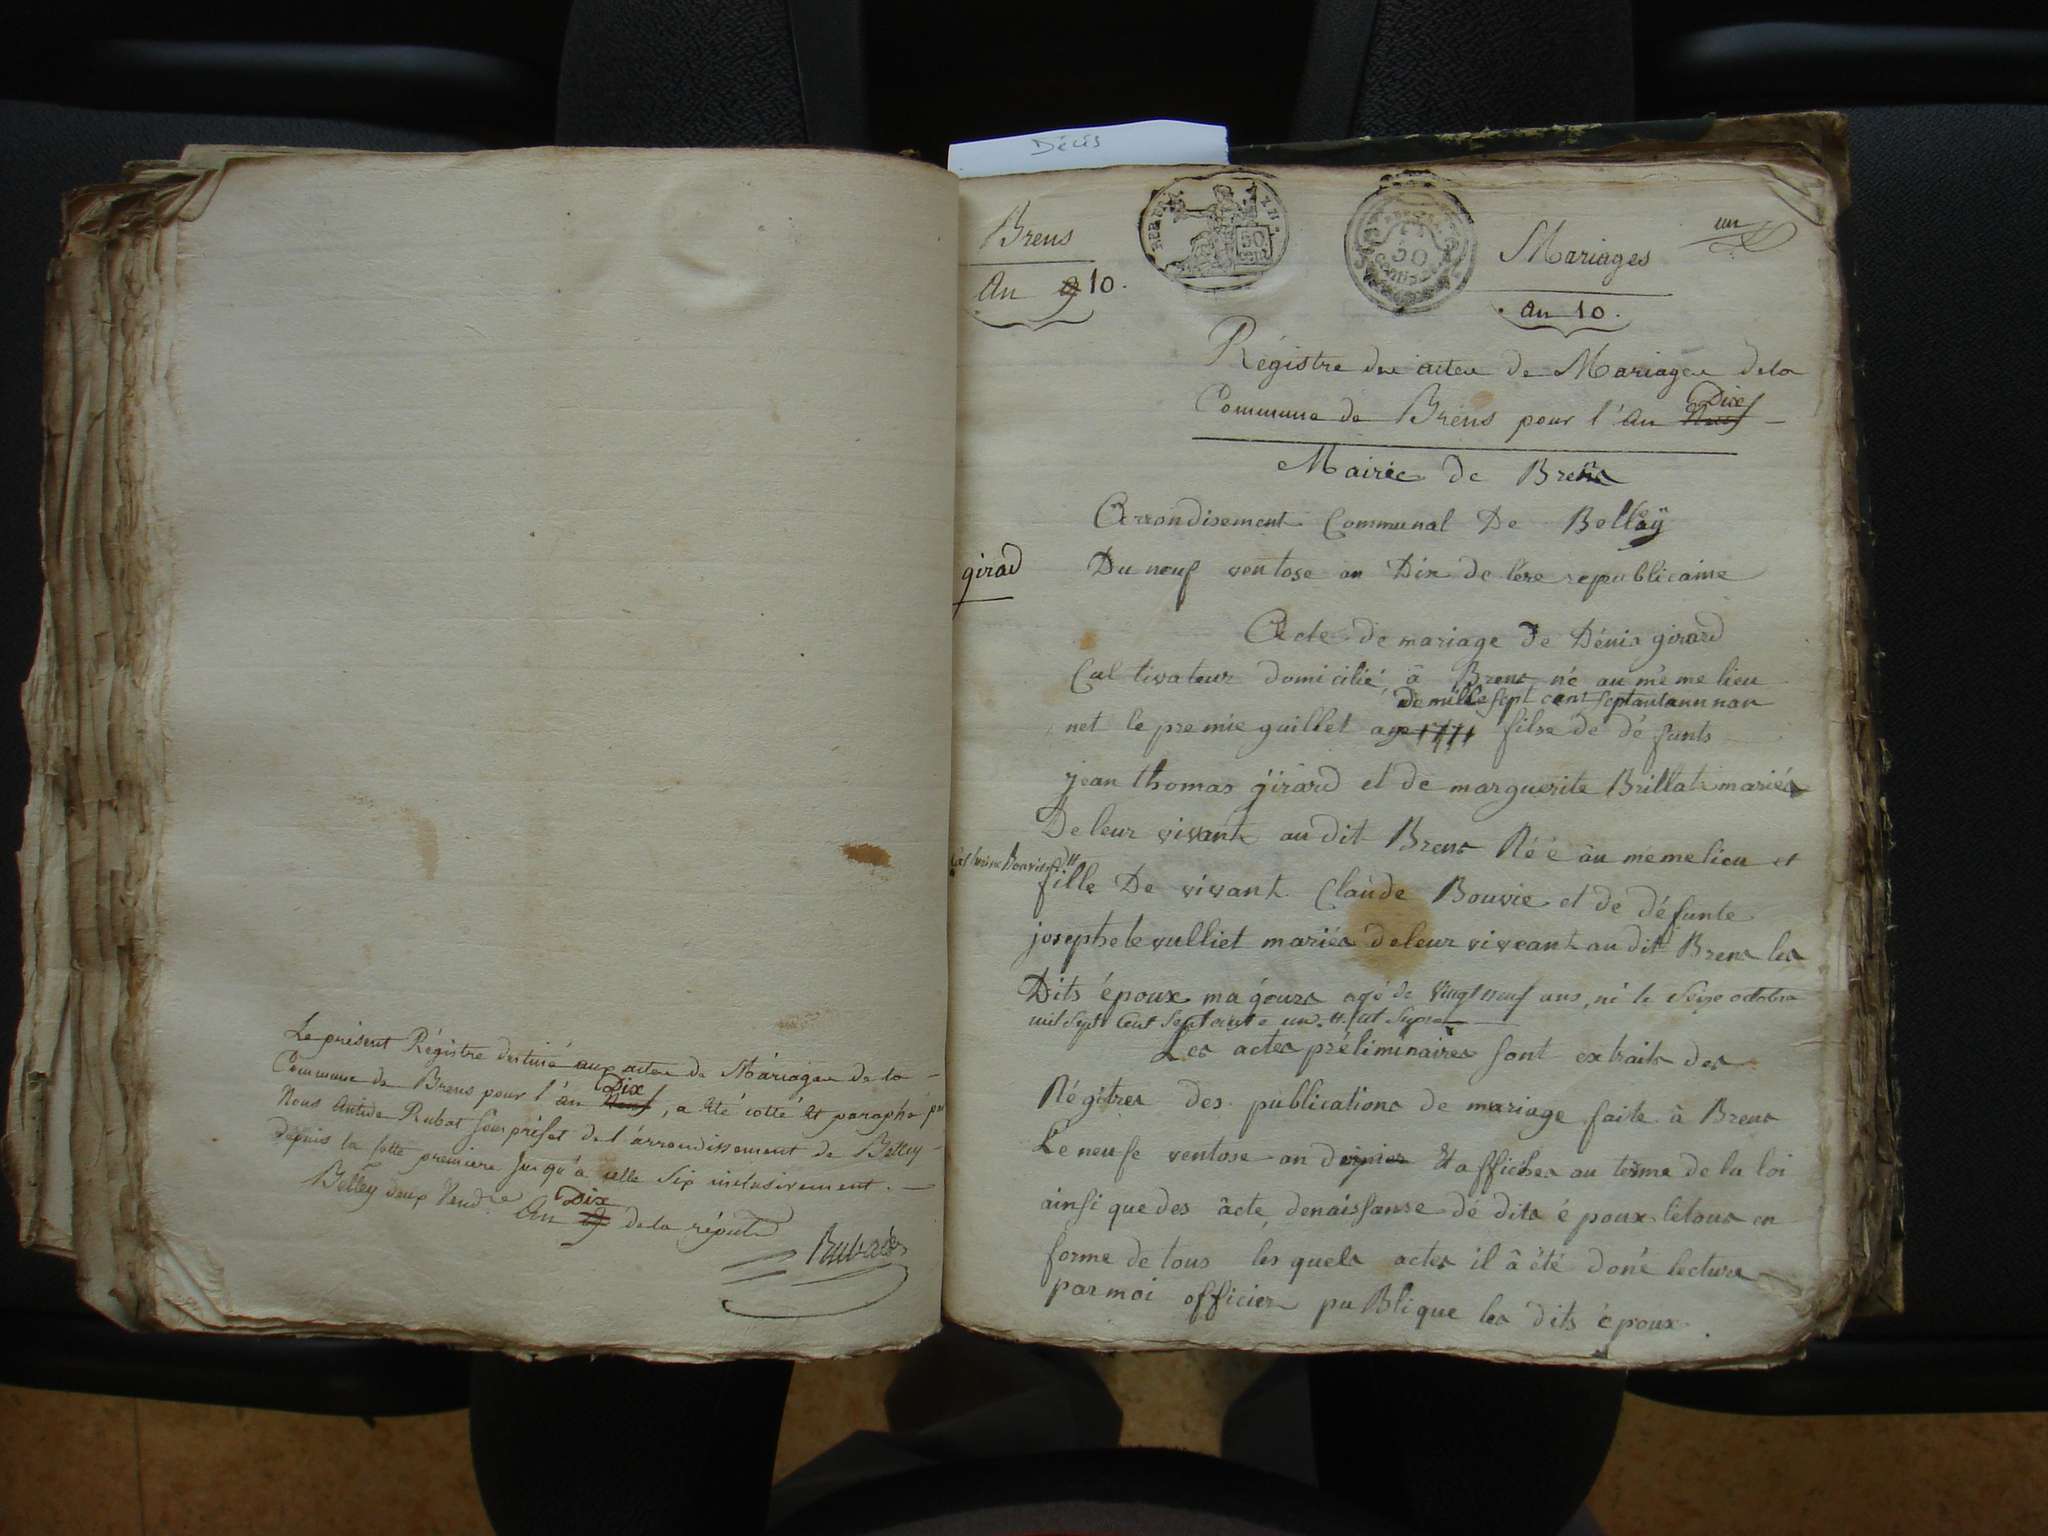 Décès
Le présent Régistre destiné aux actes de Mariages de la
Commune de Brens pour l'an Neuf Dix, a été cotté et paraphé par
Nous Antide Rubat sous préfet de l'arrondissement de Belley
depuis la cotte premiere jusqu'à celle six inclusivement.
Belley deux Vend.re An 9 Dix de la répub.
Rubat
Brens
An 9 10.
50
50
Mariages
un
An 10.
Régistre des actes de Mariages de la
Commune de Brens pour l'an Neuf Dix
Mairie de Brens
Arrondisement Communal De Belley
girard
Du neuf ventose an Dix de lere republicaine
Acte de mariage de Dénis girard
Cultivateur domicilié à Brens né au même lieu
de mille sept cent septant
net le premie guillet age 1771 filse de défunts
jean thomas girard et de marguerite Brillat mariés
De leur vivant au dit Brens Né é au même lieu et
fille De vivant Claude Bouvie et de défunte
josephete vulliet mariés de leur viveant au dit Brens les
Dits époux magours agé de vingt neuf ans, né le seize octobre
mil sept cent septante un
Les actes préliminaires sont extraits des
Régitres des publications de mariage faite à Brens
Le neufe ventose an Et affiches au terme de la loi
ainsi que des àcte denaissanse dé dits é poux letous en
forme de tous les quels actes il à été doné lecture
par moi officier puBlique les dits époux.